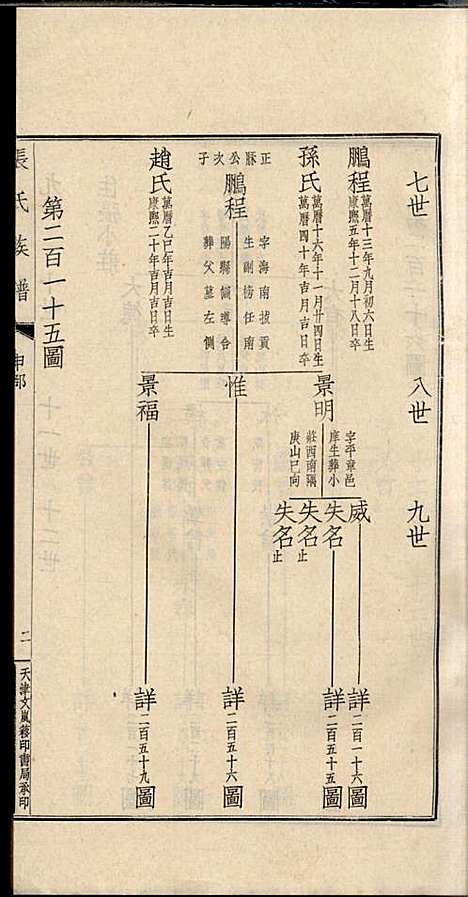 七世
八世
九世
鵬程
萬曆十三年九月初六日生
康熙五年十二月十八日卒
孫氏
萬曆十六年十一月廿四日生
萬曆四十年吉月吉日卒
正
䋛
公
次
子
鵬程
字海南拔貢
生副榜任南
陽縣儒學合
葬父墓左側
趙氏
萬曆乙巳年吉月吉日生
康熙二十年吉月吉日卒
景明
字平章邑
庠生葬小
莊西南隅
庚山巳向
惟
景福
威
失名
失名止
失名止
詳二百一十六圖
詳二百五十五圖
詳二百五十六圖
詳二百五十九圖
第二百一十五圖
張氏族譜
申部
二
天津文嵐簃印書局承印